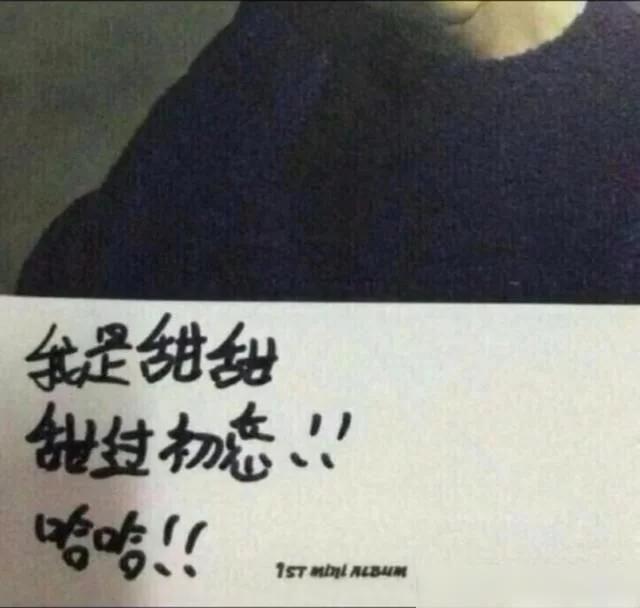 我是甜甜
甜过初恋!!
哈哈!!
1ST MINI ALBUM